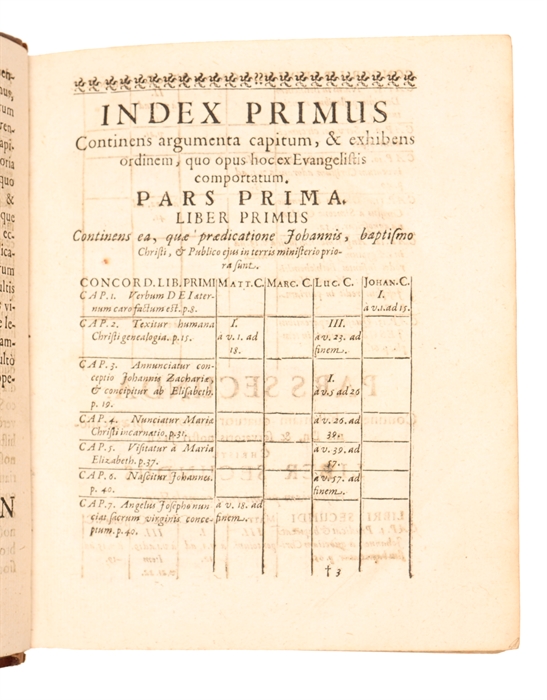 INDEX PRIMUS
Continens argumenta capitum, & exhibens
ordinem, quo opus hoc ex Evangelistis
comportatum.
PARS PRIMA.
LIBER PRIMUS
Continens ea, quæ prædicatione Johannis, baptismo
Christi, & Publico ejus in terris ministerio prio-
ra sunt.
CONCORD. LIB. PRIMI MATT. C. MARC. C. LUC. C. JOHAN. C.
CAP. 1. Verbum DEI æter- I.
num caro factum est. p. 8. a v. 1. ad 15.
CAP. 2. Texitur humana I. III.
Christi genealogia. p. 15. a v. 1. ad a v. 23. ad
18. finem.
CAP. 3. Annunciatur con- I.
ceptio Johannis Zachariæ, a v. 5 ad 26
& concipitur ab Elisabeth.
p. 19.
CAP. 4. Nunciatur Mariæ a v. 26. ad
Christi incarnatio. p. 31. 39.
CAP. 5. Visitatur à Maria a v. 39. ad
Elizabeth. p. 37.
CAP. 6. Nascitur Johannes. a v. 57. ad
p. 40. finem.
CAP. 7. Angelus Josepho nun- a v. 18. ad
ciat sacrum virginis conce- finem.
ptum. p. 40.
† 3